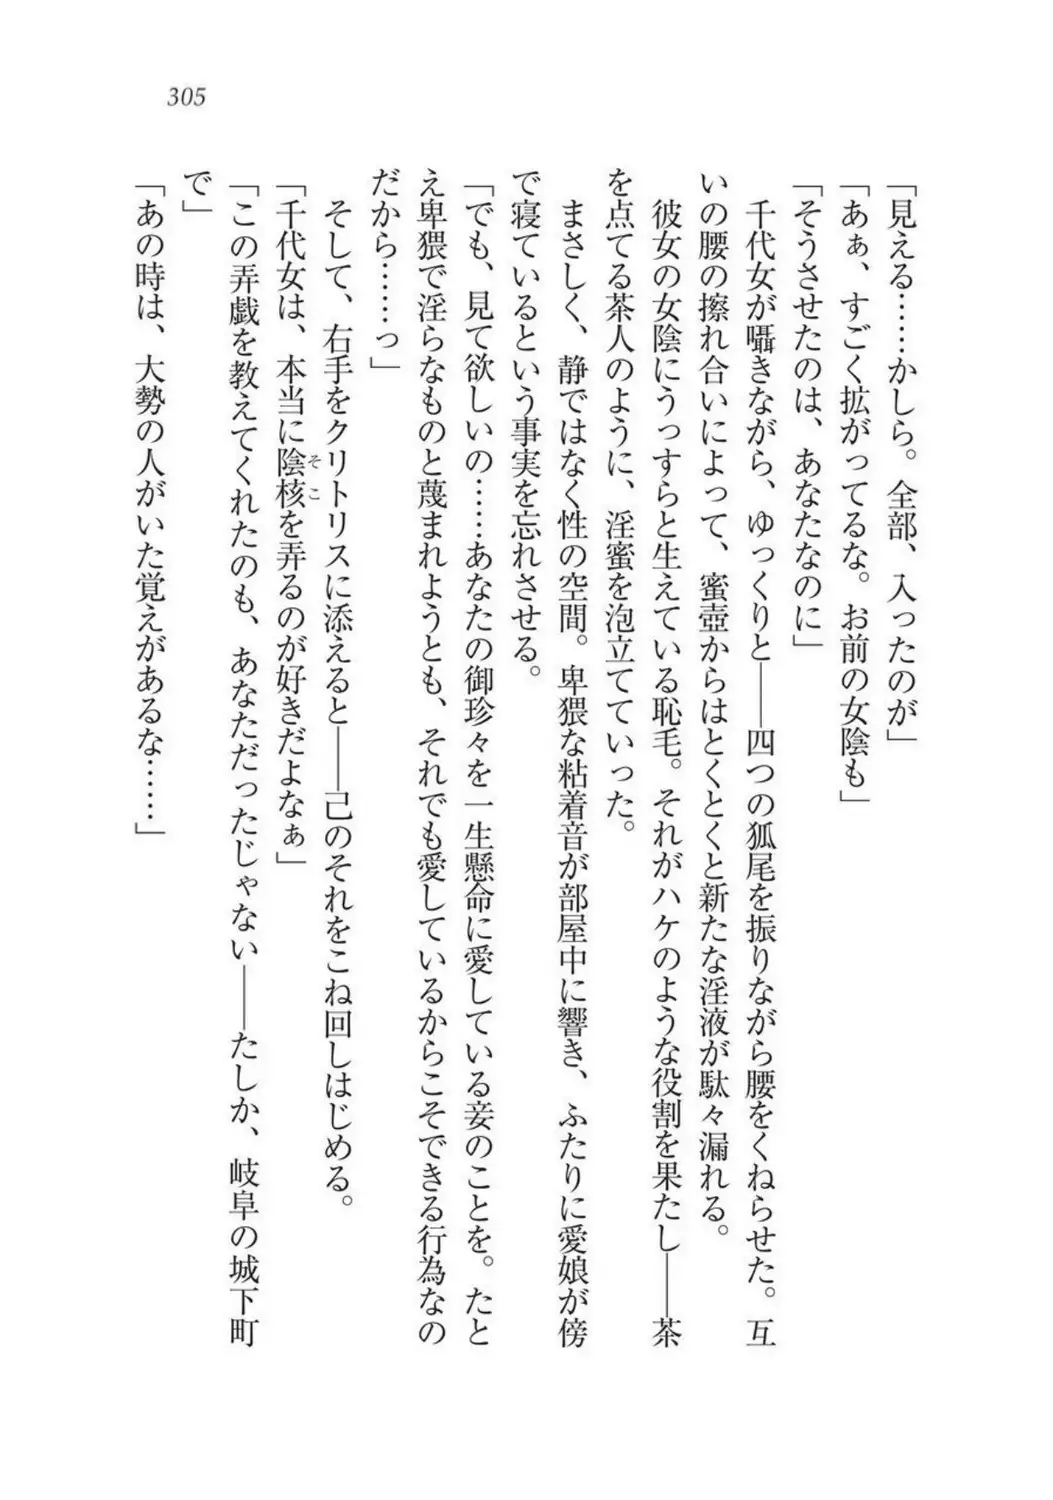 305
「見える……かしら。全部、入ったのが」
「あぁ、すごく拡がってるな。お前の女陰も」
「そうさせたのは、あなたなのに」
千代女が囁きながら、ゆっくりと――四つの狐尾を振りながら腰をくねらせた。互
いの腰の擦れ合いによって、蜜壺からはとくとくと新たな淫液が駄々漏れる。
彼女の女陰にうっすらと生えている恥毛。それがハケのような役割を果たし――茶
を点てる茶人のように、淫蜜を泡立てていった。
まさしく、静ではなく性の空間。卑猥な粘着音が部屋中に響き、ふたりに愛娘が傍
で寝ているという事実を忘れさせる。
「でも、見て欲しいの……あなたの御珍々を一生懸命に愛している妾のことを。たと
え卑猥で淫らなものと蔑まれようとも、それでも愛しているからこそできる行為なの
だから……っ」
そして、右手をクリトリスに添えると――己のそれをこね回しはじめる。
「千代女は、本当に陰核そこを弄るのが好きだよなぁ」
「この弄戯を教えてくれたのも、あなただったじゃない――たしか、岐阜の城下町
で」
「あの時は、大勢の人がいた覚えがあるな……」